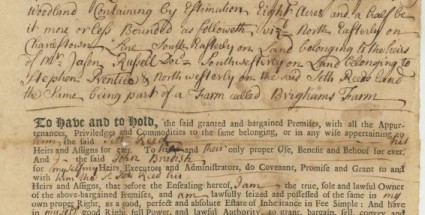 Woodland Containing by Estimation Eight Acres and a half be
it more or less Bounded as followeth Viz. North Easterly on
Charlestown Line South Easterly on Land belonging to the Heirs
of Mr. Jason Russell Dec. Southwesterly on Land belonging to
Stephen Prentice & North westerly on the said Seth Reeds land
the Same being part of a Farm called Brighams Farm
To Have and to Hold, the said granted and bargained Premises, with all the Appur-
tenances, Priviledges and Commodities to the same belonging, or in any wise appertaining to
him the said Seth Reed his
Heirs and Assigns for ever. To his and their only proper Use, Benefit and Behoof for ever.
And I the said John
for my self my Heirs Executors and Administrators, do Covenant, Promise and Grant to and
with him the said Seth Reed his
Heirs and Assigns, that before the Ensealing hereof, I am the true, sole and lawful Owner
of the above-bargained Premises, and am lawfully seized and possessed of the same in my
own proper Right, as a good, perfect and absolute Estate of Inheritance in Fee Simple: And have
in my self good Right, full Power, and lawful Authority, to grant, bargain, sell, convey, and